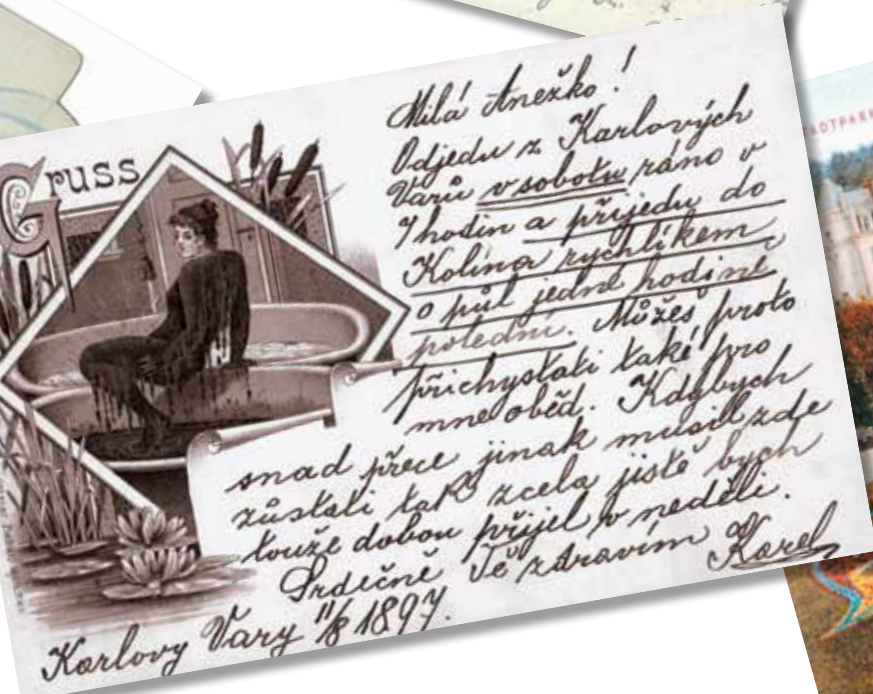 Gruss
Milá Anežko!
Odjedu z Karlových
Varů v sobotu ráno v
7 hodin a přijedu do
Kolína rychlíkem
o půl jedné hodině
polední. Můžeš proto
přichystati také pro
mne oběd. Kdybych
snad přece jinak musil zde
zůstati tak zcela jistě bych
touže dobou přijel v neděli.
Srdečně Tě zdravím Karel
Karlovy Vary 11/8 1897.